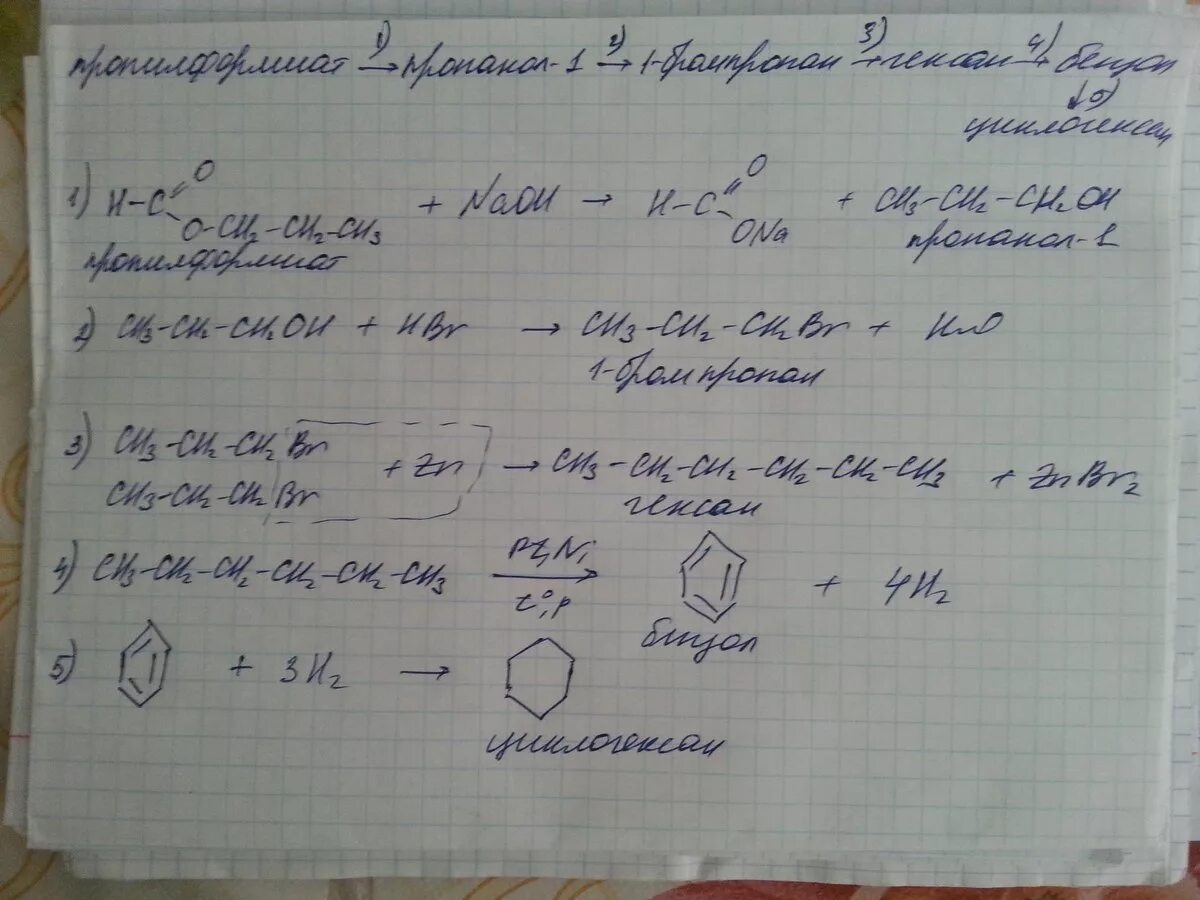 пропилформиат 1)→ пропанол-1 2)→ 1-бромпропан 3)→ гексан 4)→ бензол
↓5)
циклогексан
1) H-C=O O-CH2-CH2-CH3 + NaOH → H-C=O ONa + CH3-CH2-CH2OH
пропилформиат пропанол-1
2) CH3-CH2-CH2OH + HBr → CH3-CH2-CH2Br + H2O
1-бромпропан
3) CH3-CH2-CH2Br CH3-CH2-CH2Br + Zn → CH3-CH2-CH2-CH2-CH2-CH3 + ZnBr2
гексан
4) CH3-CH2-CH2-CH2-CH2-CH3 Pt,Ni t°,p → + 4H2
бензол
5) + 3H2 →
циклогексан